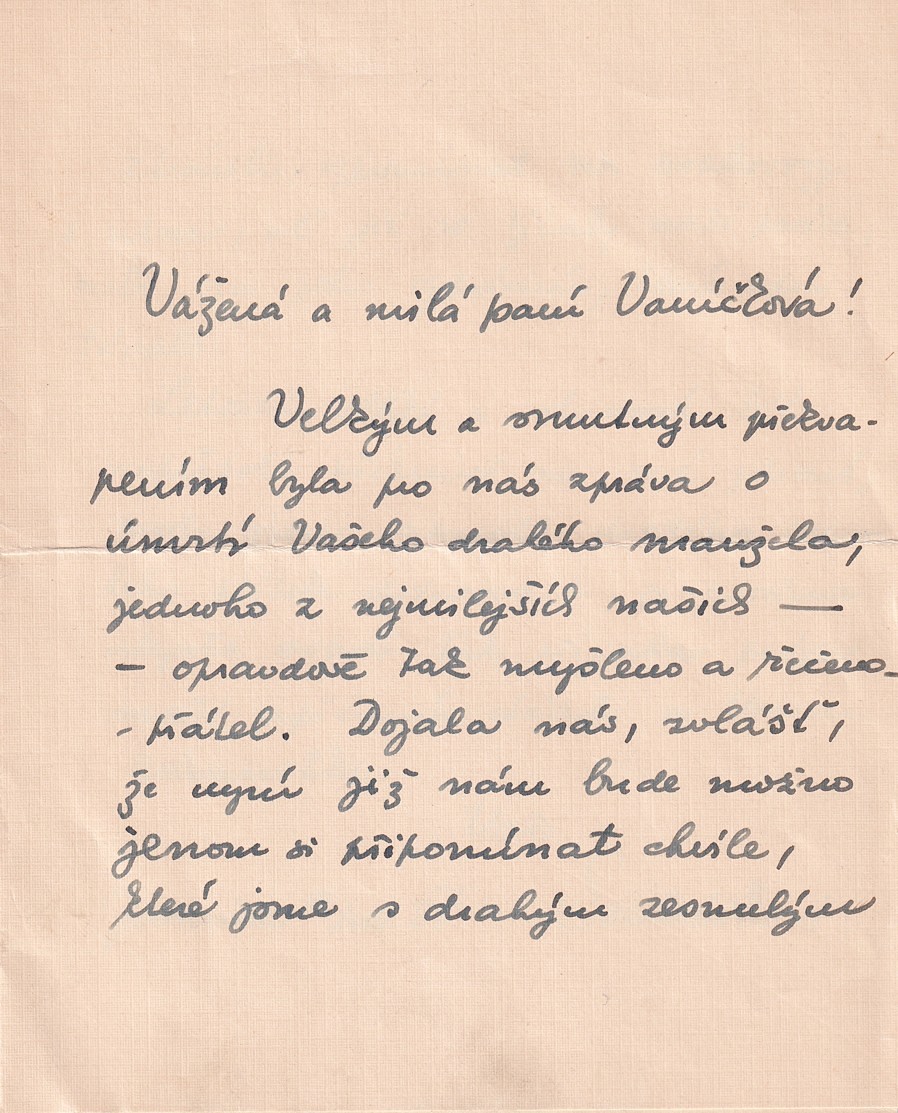 Vážená a milá paní Vaníčková!
Velkým a smutným překva-
pením byla pro nás zpráva o
úmrtí Vašeho drahého manžela,
jednoho z nejmilejších našich —
— opravdově tak myšleno a řečeno -
- přátel. Dojala nás, zvlášť,
že nyní již nám bude možno
jenom si připomínat chvíle,
které jsme s drahým zesnulým